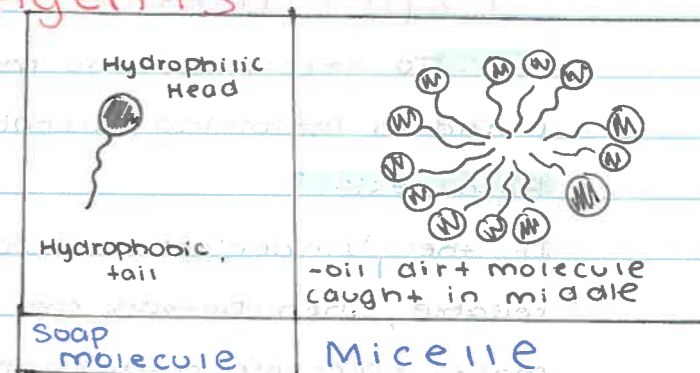 Agents
Hydrophilic
Head
Hydrophobic
tail
-oil dirt molecule
caught in middle
Soap
molecule
Micelle